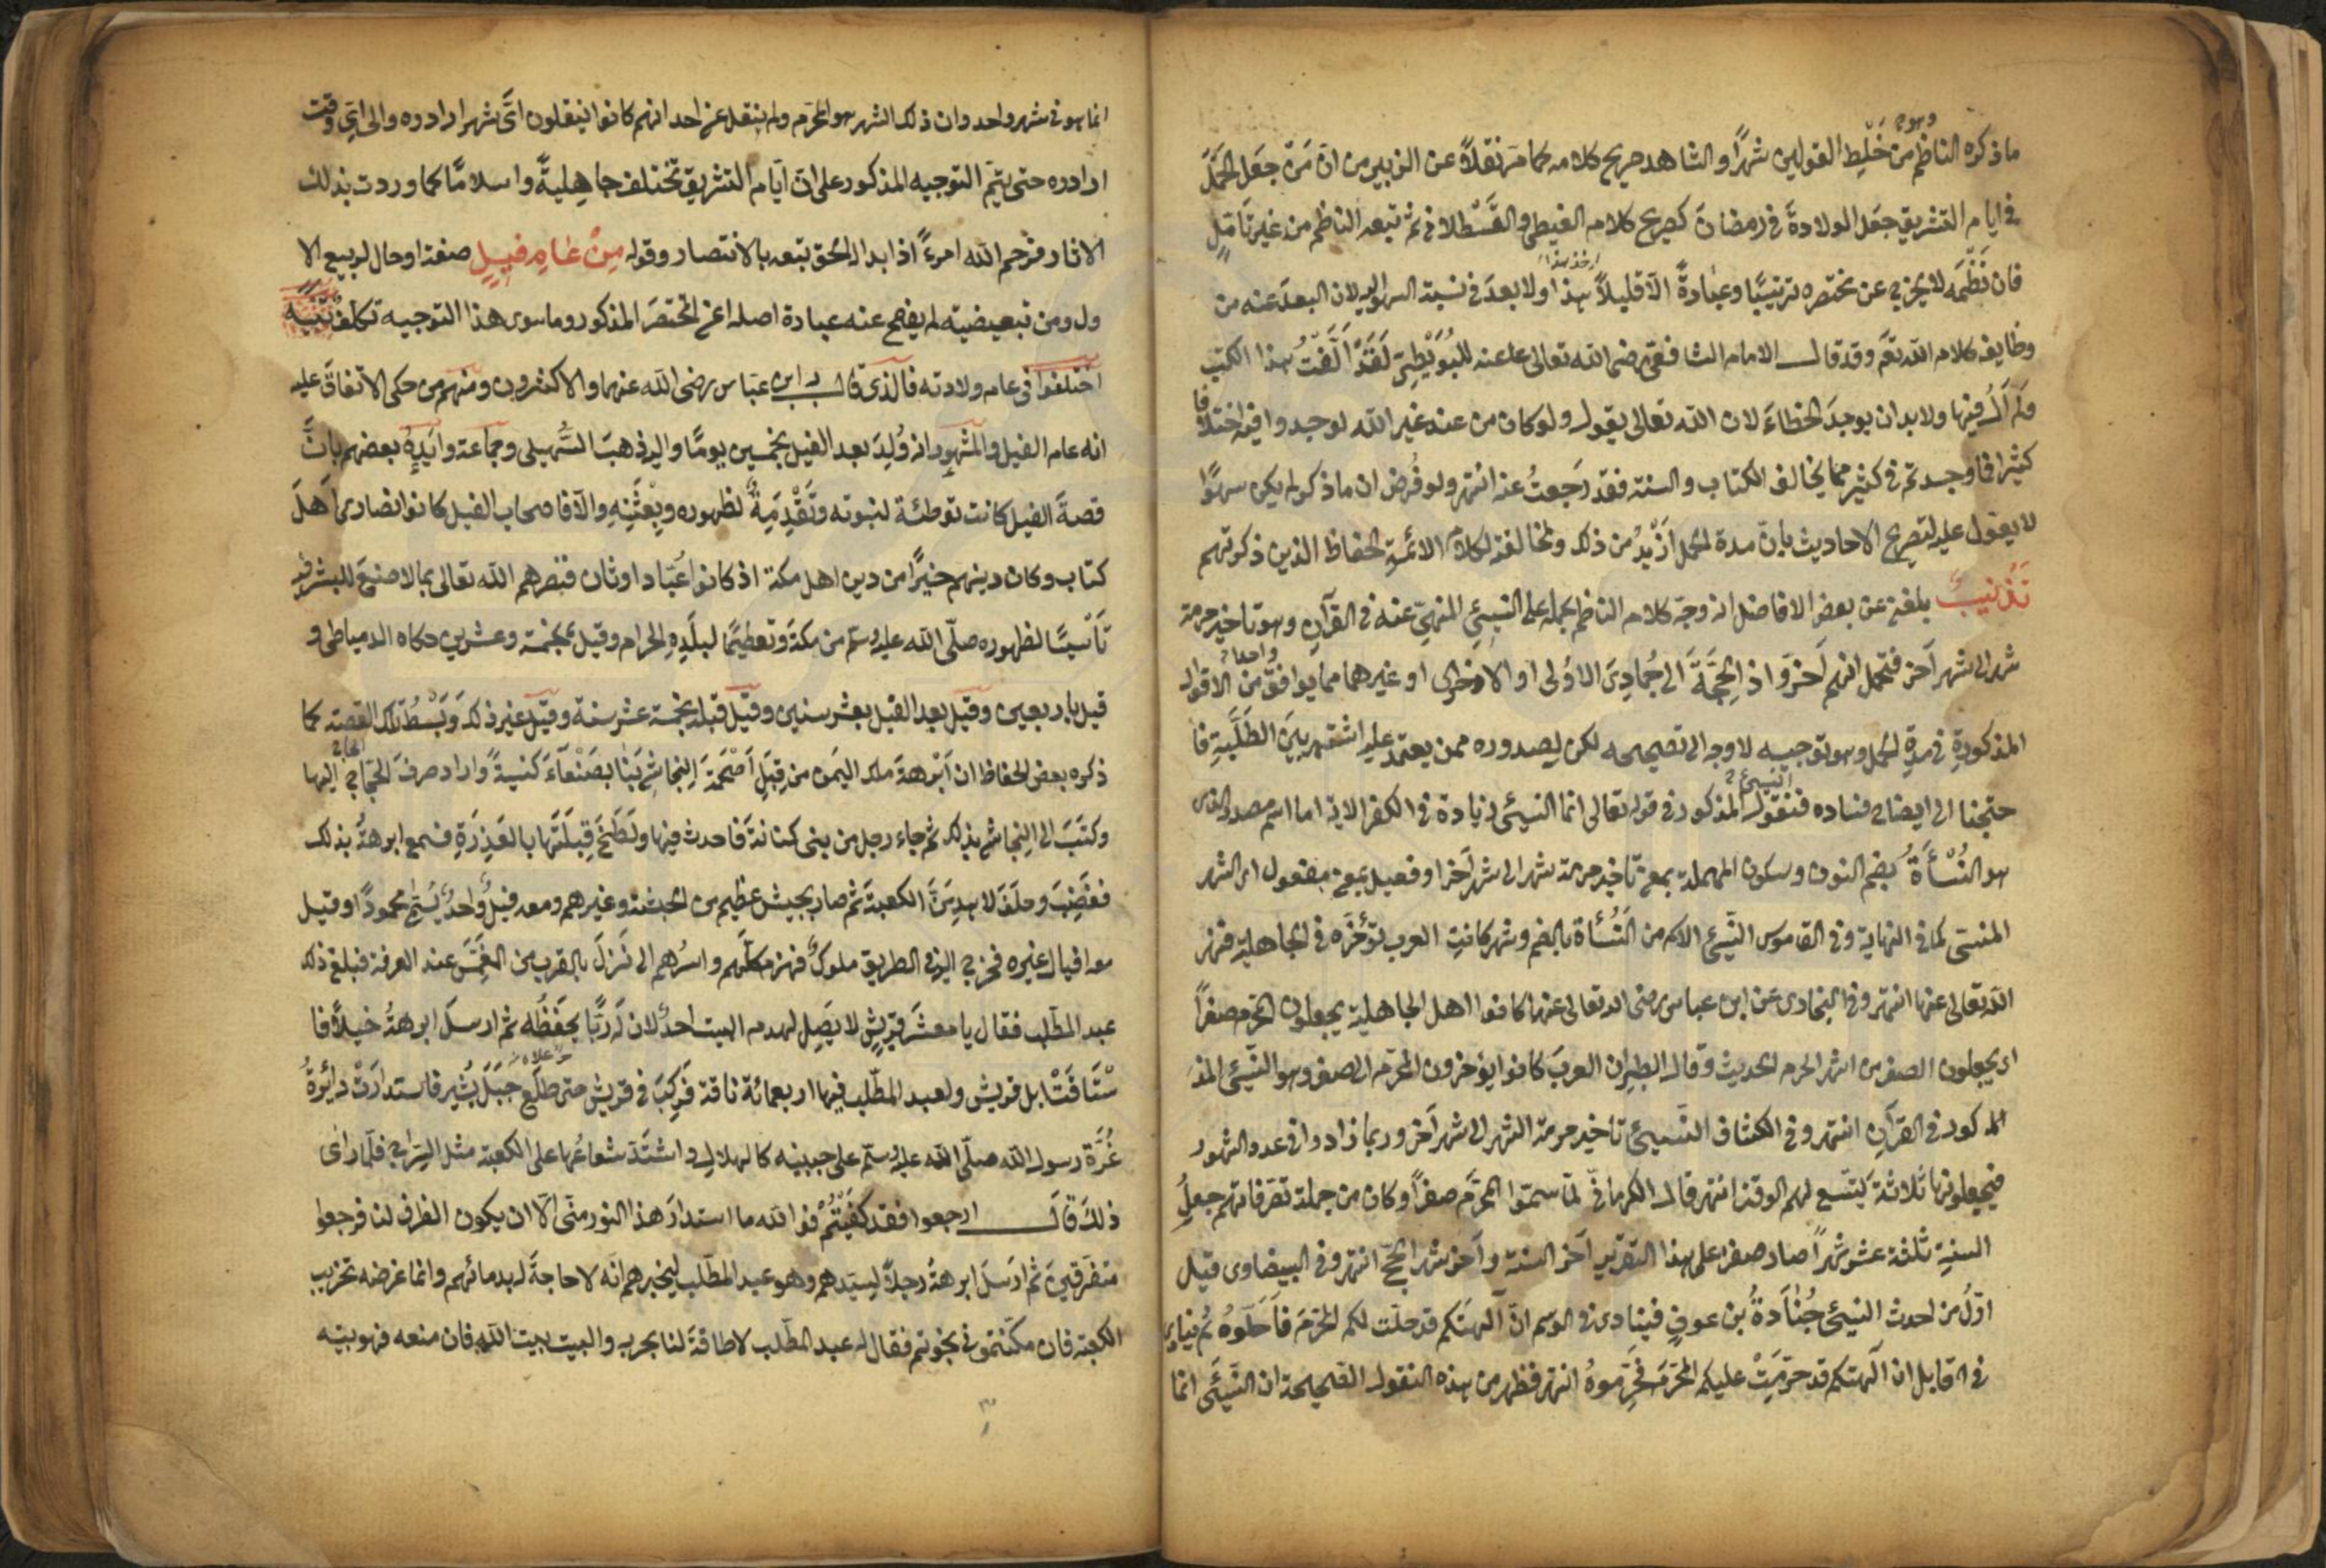 وهو
ما ذكره الناظم من خَلْيط القولين شهرًا والشاهد صريح كلامه كما مَرَ نقلاً عن الزبير من انّ مَنْ جعَل الحَمْلَ
في ايام التشريق جعَل الولادةَ في رمضانَ كصريح كلام الغيطي والقَسْطلاني ثم تبعه الناظم من غير تَأمّلٍ
فان نَظْمَه لا يخرج عن مختصره ترتيبًا وعبادةً الّا قليلاً هذا ولا بعدَ في نسبة السهو اليه لان البعدَ عنه من
وظايف كلام الله نعَم وقد قال الامام الشافعي رضى الله تعالى عنه للبُوَيْطِيّ لَقَدْ اَلَّفْتُ هذا الكتب
ولَم آلُ فيها ولا بد ان يوجدَ الخطاءَ لان الله تعالى يقول ولو كان من عند غير الله لوجدوا فيه اختلافا
كثيرا فما وجدتم في كثير مما يخالف الكتاب والسنة فقد رَجعتُ عنه انتهى ولو فُرض ان ما ذكر لم يكن سهوًا
لا يعوّل عليه لتصريح الاحاديث بانّ مدة الحمل اَزْيدُ من ذلك ولمخالفته لكلام الائمة الحفاظ الذين ذكرتهم
تَذْنيبٌ بلغنى عن بعض الافاضل انه وجّه كلام الناظم بحمله على النسيئِ المنهيّ عنه في القرآن وهو تاخير حرمة
شهر الى شهر آخر فتحمل انهم اَخرّوا ذا الحِجّةَ الى جُمادى الاُولى او الاُخرى او غيرهما مما يوافق من الاقوال
المذكورةِ في مدةِ الحمل وهو توجيه لا وجه الى تصحيحه لكن لصدوره ممن يعتمد عليه اشتهر بينَ الطَلَبةِ فا
حتجنا الى ايضاح فساده فنقول النسيئ المذكور في قوله تعالى انما النسيئ زيادة في الكفر الاية اما اسم مصدر الذى
هو النُسْأةُ بضم النون وسكون المهملة بمعنى تاخير حرمة شهر الى شهر آخر او فعيل بمعنى مفعول اى الشهر
المنسى كما في النهاية وفي القاموس النسيئ الاسم من النُسْأة بالضم وشهر كانت العرب تؤخّره في الجاهلية فنهى
الله تعالى عنها انتهى وفي البخارى عن ابن عباس رضى الله تعالى عنها كانوا اهل الجاهلية يجعلون المحرم صفرًا
اى يجعلون الصفر من اشهر الحرم الحديث وقال الطبرى ان العربَ كانوا يؤخرون المحرّم الى صفر وهو النسيئ المذ
المذكور في القرآن انتهى وفي الكشاف النسيئ تأخير حرمة الشهر الى شهر آخر وربما زادوا في عدد الشهور
فيجعلونها ثلاثةَ ليتسع لهم الوقت انتهى قال الكرمانى لمّا سموا المحرّمَ صفرًا وكان من جملة تصرفاتهم جعلُ
السنة ثلثة عشر شهرًا صار صفر على هذا التقرير آخر السنة وآخر شهر الحج انتهى وفي البيضاوى قيل
اوّلُ من احدث النسيئ جُنادةُ بن عوفٍ فينادى في الموسم انّ آلهتكم قد حلّت لكم المحرّم فاَحَلّوهُ ثم ينادى
في القابل ان آلهتكم قد حرّمتْ عليكم المحرّم فحَرّموهُ انتهى فظهر من هذه النقول الصحيحة ان النسيئ انما
انما هو في شهر واحد وان ذلك الشهر هو المحرّم ولم ينقل عن احد انهم كانوا ينقلون اىَّ شهر ارادوه والى اىّ وقت
ارادوه حتى يتمّ التوجيه المذكور على انّ ايام التشريق تختلف جاهليةً واسلامًا كما وردت بذلك
الاثار فرحم الله امرءً اذا بدا له الحق تبعه بالانتصار وقوله مِنْ عَامِ فيلٍ صفة او حال لربيع الا
ول ومن تبعيضيته لم يفصح عنه عبارة اصله اعنى المختصَر المذكور وما سوى هذا التوجيه تكلفٌ تَنْبيه
اختلفوا فى عام ولادته فالذى قال به ابن عبّاس رضى الله عنهما والاكثرون ومنهم من حكى الاتفاقَ عليه
انه عام الفيل والمشهور انه وُلِدَ بعد الفيل بخمسين يومًا واليه ذهبَ السُهيلى وجماعة وايّدهُ بعضهم بانّ
قصةَ الفيل كانت توطئة لنبوته وتَقْدِمةً لظهوره وبِعْثتِهِ والّا فاصحاب الفيل كانوا نصارى اَهلَ
كتاب وكان دينهم خيرًا من دين اهل مكة اذ كانوا عُبّاد اوثان فنصرهم الله تعالى بما لا صنعَ للبشر فيه
تأسيسًا لظهوره صلّى الله عليه وسلم من مكةَ وتعظيمًا لبلَدِهِ الحرام وقيل بخمسة وعشرين حكاه الدمياطى و
قيل باربعين وقيل بعد الفيل بعشر سنين وقيل قبله بخمسة عشر سنة وقيل غير ذلك وَبَسْطُ تلك القصة كما
ذكره بعض الحفاظ ان اَبْرهةَ ملك اليمَن من قِبَلِ اَصْحَمةَ النجاشي بَنا بصَنْعاءَ كَنيسةً واراد صرفَ الحجّاج اليها
وكتَبَ الى النجاشي بذلك ثم جاء رجل من بنى كنانةَ فاحدث فيها ولَطَخَ قِبلَتَها بالعَذِرَةِ فسمع ابرهةُ بذلك
فغضِبَ وحلَفَ لا يهدمَنّ الكعبةَ ثم صار بجيش عظيم من الحبشة وغيرهم ومعه فيلٌ واحدٌ يُسَمّى محمودًا وقيل
معه افيال غيره فخرج اليه في الطريق ملوكٌ فهزم كلّهم واسرُهم الى نَزلَ بالقرب من المغمّس عند العرفة فبلغ ذلك
عبد المطّلب فقال يا معشَر قريش لا يصِل لهدم البيت احدٌ لان له رَبًّا يحفَظُه ثم ارسلَ ابرهةُ خيلاً فا
سْتَاقتْ ابل قريش ولعبد المطّلب فيها اربعمائة ناقة فَركِبَ في قريش حتى طلَع جَبَلَ ثَبير فاستدارَتْ دائرةُ
غُرّةِ رسول الله صلّى الله عليه وسلّم على جبينه كالهلالِ واشتدّ شعاعُها على الكعبة مثل السِراج فلمّا رأى
ذلكَ قالَ ارجعوا فقد كُفيْتُمْ فوالله ما استدارَ هذا النور منّى الّا ان يكون الظفر لنا فرجعوا
متفرّقينَ ثم ارسلَ ابرهةُ رجلاً لسيّدهم وهو عبد المطّلب ليخبرهم انّه لا حاجةَ له بدمائهم وانما غرضه تخريب
الكعبة فان مكّنتموني نجوتم فقال له عبد المطّلب لا طاقةَ لنا بحربه والبيت بيت الله فان منعه فهو بيته